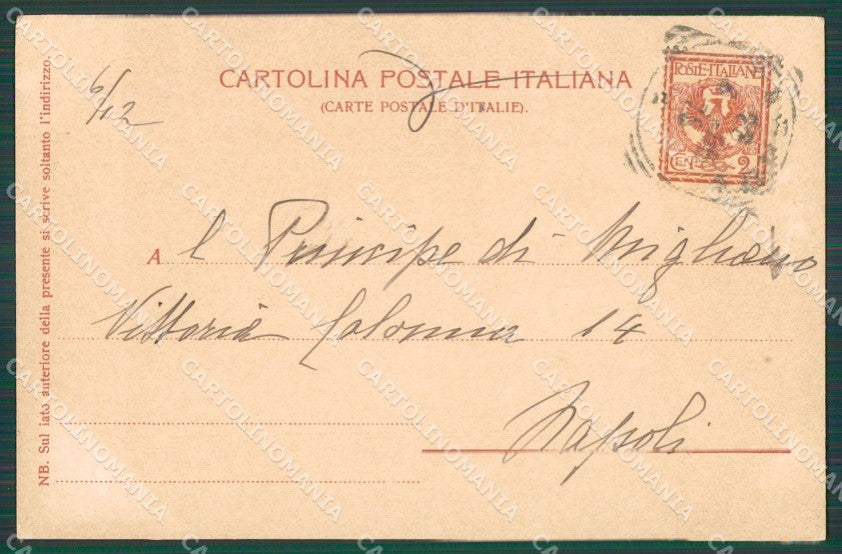 CARTOLINA POSTALE ITALIANA
(CARTE POSTALE D'ITALIE).
POSTE·ITALIANE
CEN. 2
6/12
A l Principe di Migliano
Vittoria Colonna 14
Napoli
NB. Sul lato anteriore della presente si scrive soltanto l'indirizzo.
CARTOLINOMANIA